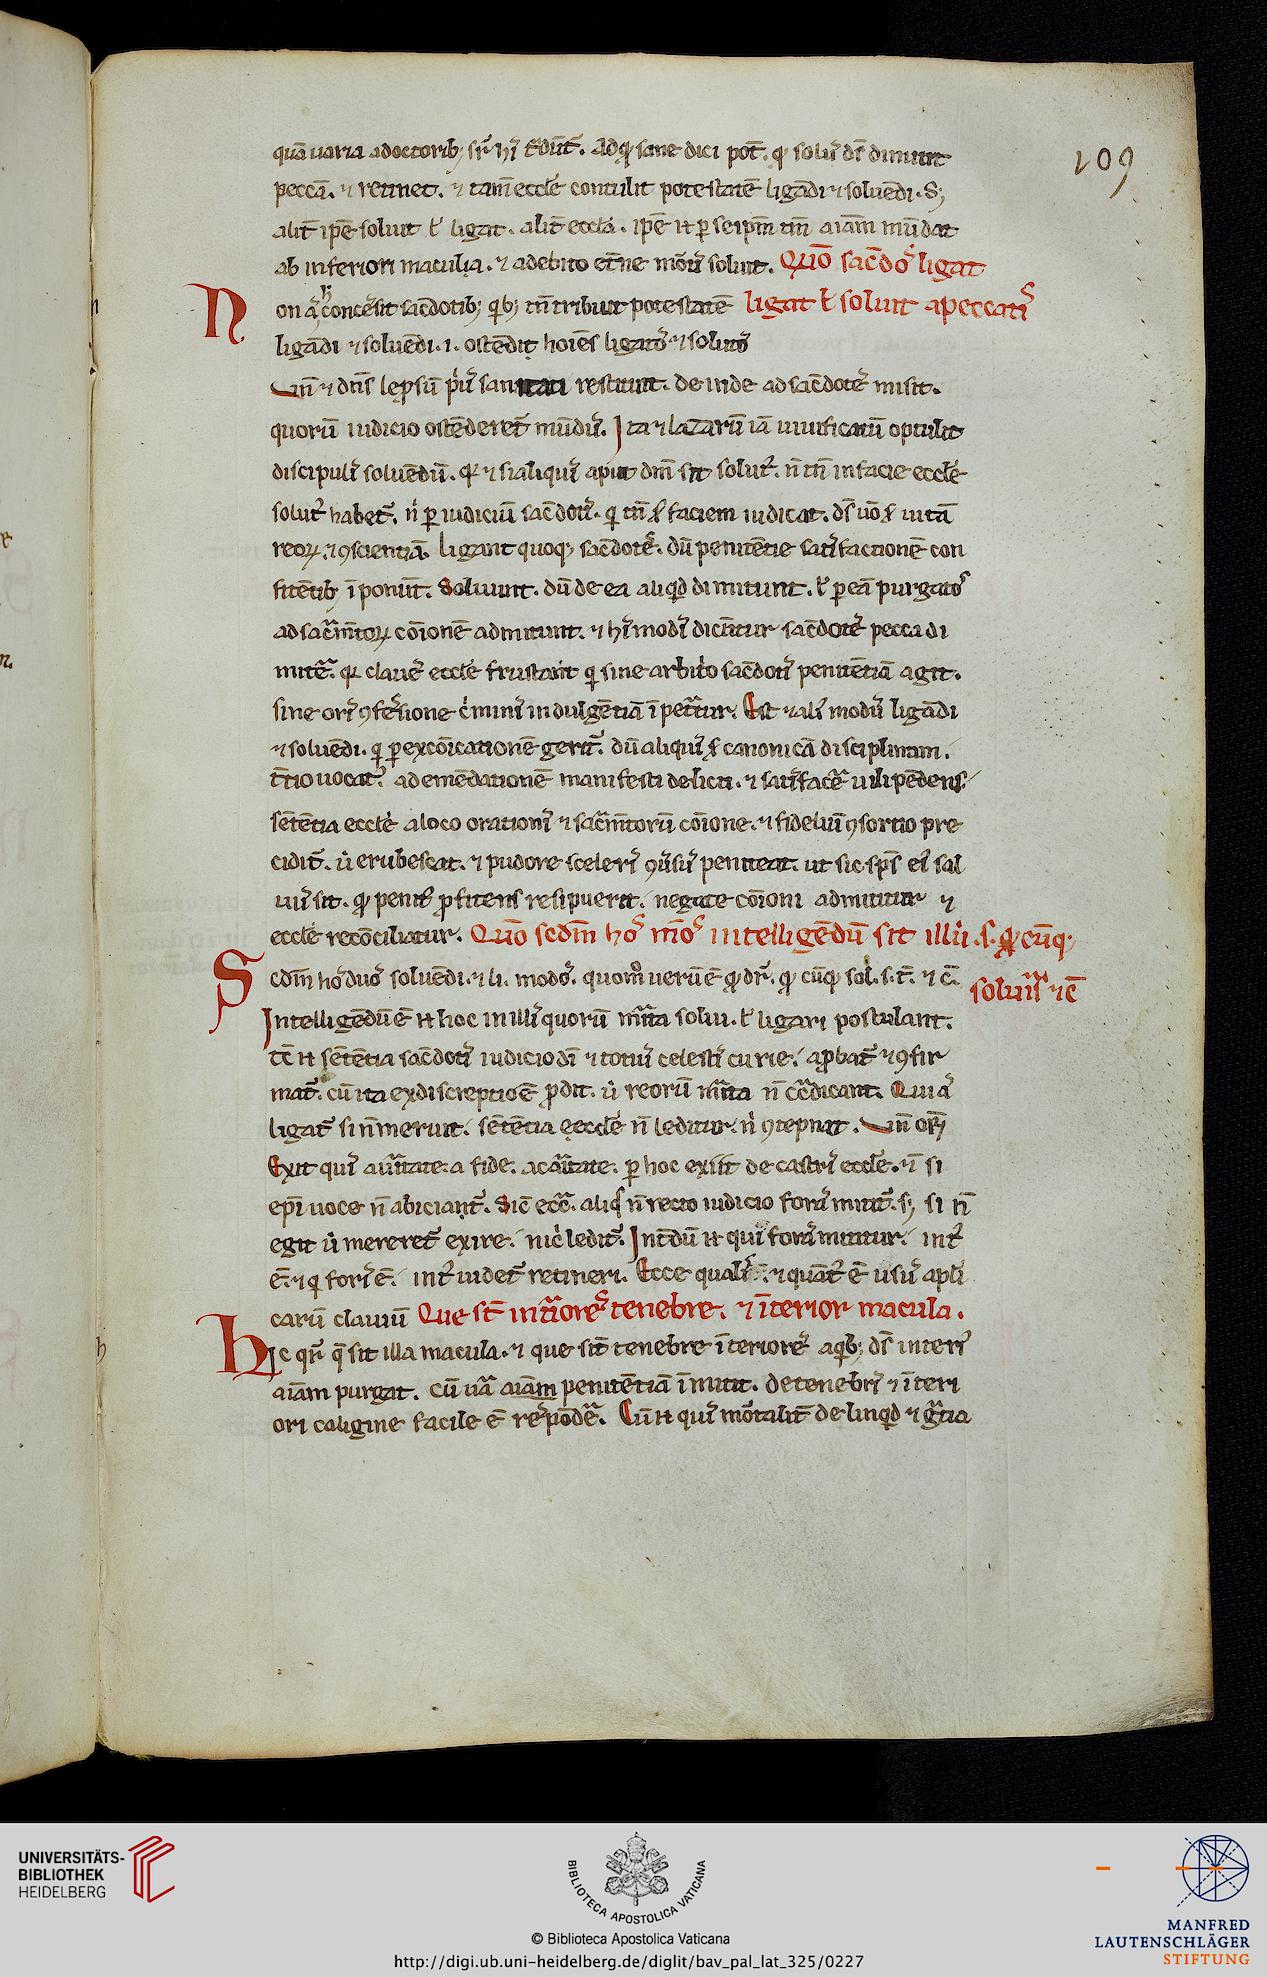 109
quā uaria a doctorib; sr̄ hi᷒ t͛dūt᷒. Ad q᷒ sane dici pot̄. q᷒ solu᷒ ds̄ dimittit
peccā. ⁊ retinet. ⁊ tam̄ eccl̄e contulit potestatē ligādi ⁊ soluēdi. S;
alit̄ ipē soluit ł ligat. alit̄ eccl̄a. ipē .n. p̱ seip̄m tm̄ aīam mūdat
ab inferiori macula. ⁊ a debito et̄ne mōrt᷒ soluit. Quō sac̄do᷒ ligat
Non aͥ h̄ concēsit sac̄dotib; qͥb; tn̄ tribuit potestatē ligat ł soluit a peccati᷒
ligādi ⁊ soluēdi. i. ostēdit hoīēs ligato᷒ ⁊ soluto᷒
Vn̄ ⁊ dn̄s lep̱sū pͥu᷒ sanitati restituit. deinde ad sac̄dote᷒ misit.
quorū iudicio ostēderet᷒ mūdu᷒. Ita ⁊ lazarū iā uiuificatū optulit
discipuli᷒ soluēdū. q᷒ ⁊ si aliqui᷒ aput dm̄ sit solut᷒. n̄ tn̄ in facie eccl̄e
solut᷒ habet᷒. nͥ p̱ iudiciū sac̄doti᷒. qͥ tn̄ ẜ faciem iudicat. ds̄ uō ẜ uitā
reoꝝ. ⁊ ꝯscientiā. ligant quoq; sac̄dote᷒. dū penitētie satiffactionē con
fitētib; īponūt. Soluunt. dū de ea aliqͥd dimitunt. ł p̱ eā purgato᷒
ad sac̄m̄toꝝ cōīonē admitunt. ⁊ hi᷒ modi᷒ dicūtur sac̄dote᷒ pecca di
mitē͛. q᷒ claue᷒ eccl̄e frustat̄it qͥ sine arbitͥo sac̄doti᷒ penitētiā agit.
sine ori᷒ ꝯfēsione cͥmini᷒ indulgētiā īpetͣtur. Est ⁊ ali᷒ modu᷒ ligādi
⁊ soluēdi. qͥ p̱ excōīcationē gerit᷒. dū aliqui᷒ ẜ canonicā disciplinam.
t̄tio uocat᷒. ad emēdationē manifesti delicti. ⁊ satiffacē͛ uilipēdens.
sētētia eccl̄e a loco orationi᷒ ⁊ sac̄m̄torū cōīone. ⁊ fideliū ꝯsortio pre
cidit᷒. uͭ erubescat. ⁊ pudore sceleri᷒ ꝯūsu᷒ peniteat. ut sic sps̄ ei᷒ sal
uu᷒ sit. q᷒ penit̄ ꝓfitens resipuerit. negate cōīoni admittitur ⁊
eccl̄e recōciliatur. Quō scdm̄ ho᷒ mō᷒ intelligēdū sit illu᷒ .s. q᷒ cūq;
Scdm̄ ho᷒ duo᷒ soluēdi. ⁊ li. modo᷒. quom͛ uerū ē q᷒ dr̄. q᷒ cūq; sol. s. t̄. ⁊ c̄. soluiti᷒ ⁊ c̄
Intelligēdū ē .n. hoc in illi᷒ quorū mͣita solui. ł ligari postulant.
t̄c .n. sētētia sac̄doti᷒ iudicio dī ⁊ totiu᷒ celesti᷒ curie. aꝓbat᷒ ⁊ ꝯfir
mat᷒. cū ita ex discreptioē ꝓdit. uͭ reorū mͣita n̄ cͣdicant. Qui a᷒
ligat᷒ si n̄ meruit. sētētia eccl̄e n̄ leditur. nͥ ꝯtepnat. Vn̄ orḡ
Exit qui᷒ a uͥtate. a fide. a cāritate. p̱ hoc exiit de castri᷒ eccl̄e. ⁊ si
ep̄i uoce n̄ abiciant᷒. Sic ecͣ. aliq᷒ n̄ recto iudicio fora᷒ mitit᷒. s; si n̄
egit uͭ mereret᷒ exire. nicͨ ledit᷒. Int̄dū .n. qui fora᷒ mittitur. int᷒
ē. ⁊ qͥ fori᷒ ē. int᷒ uidet᷒ retineri. Ecce quali᷒ ē. ⁊ quāt᷒ ē usu᷒ apl̄i
carū clauiū Que st̄ intͥiore᷒ tenebre. ⁊ īterior macula.
Hic qr̄ q̄ sit illa macula. ⁊ que sit̄ tenebre īteriore᷒ a qͥb; ds̄ interi᷒
aīam purgat. cū uͣā aīam penitētiā īmitit. de tenebri᷒ ⁊ īteri
ori caligine facile ē respōdē͛. Cū .n. qui᷒ mōtalit̄ delinqͥd ⁊ gͣtia
UNIVERSITÄTS-
BIBLIOTHEK
HEIDELBERG
BIBLIOTECA APOSTOLICA VATICANA
© Biblioteca Apostolica Vaticana
http://digi.ub.uni-heidelberg.de/diglit/bav_pal_lat_325/0227
MANFRED
LAUTENSCHLÄGER
STIFTUNG